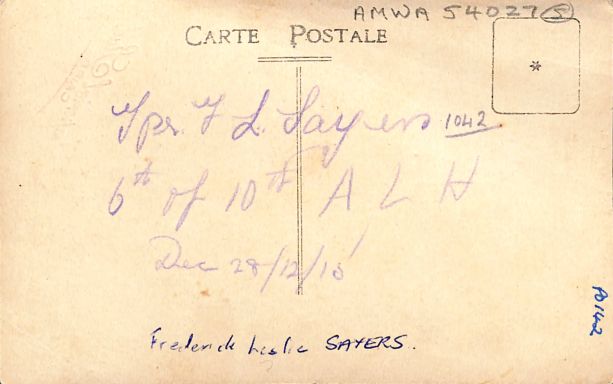 AMWA 54027 5
CARTE POSTALE
*
Tpr. F L. Sayers 1042
6th of 10th A L H
Dec 28/12/15
Frederick Leslie SAYERS.
PD142